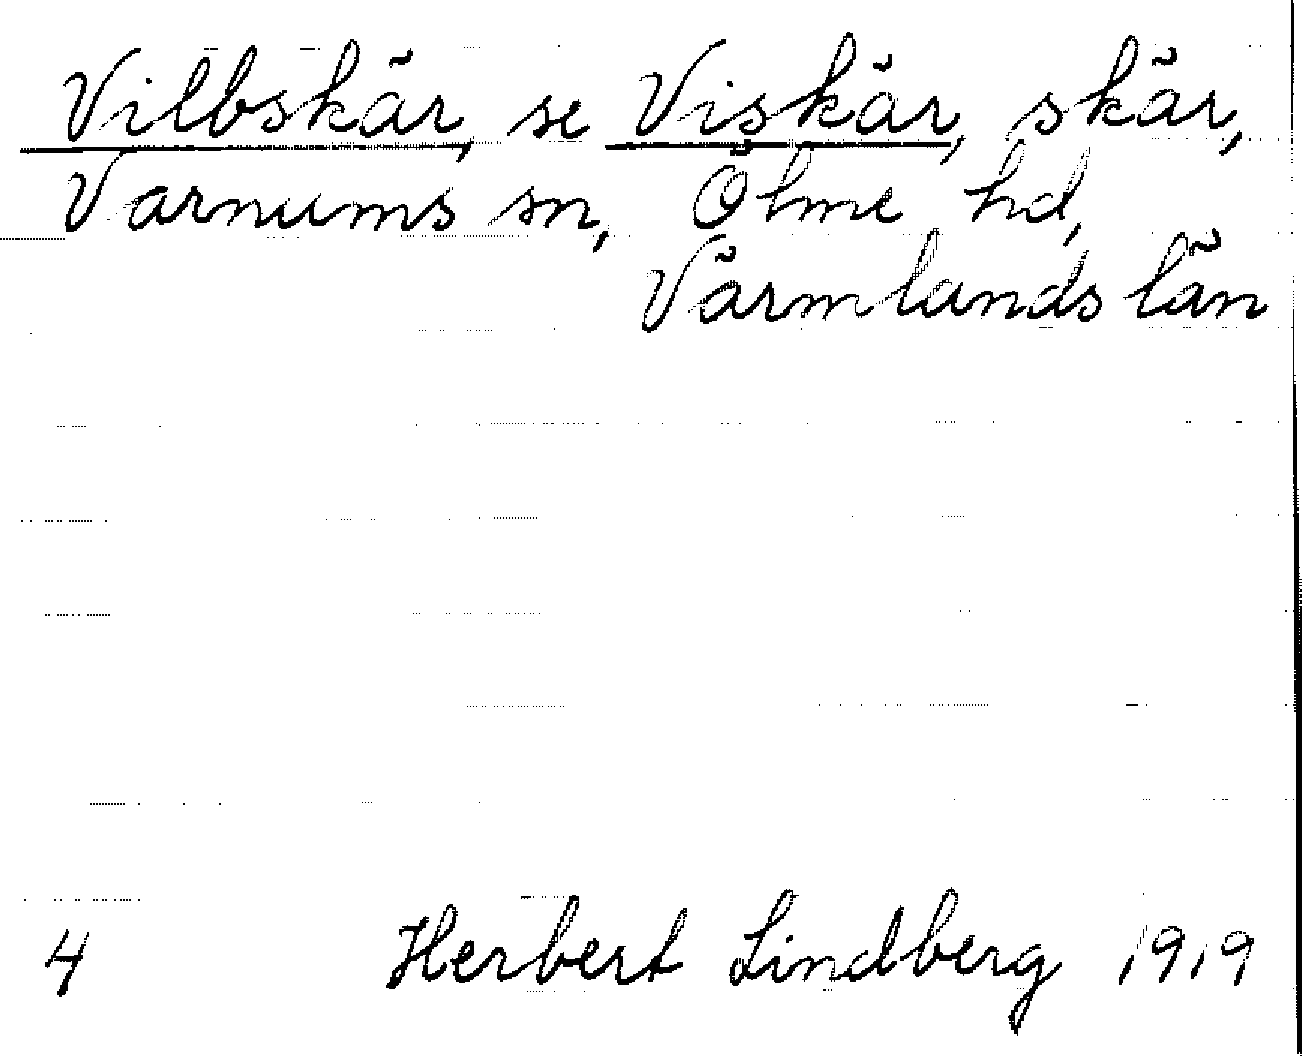 Vilbskär, se Viskär, skär,
Varnums sn, Ölme hd,
Värmlands län
4 Herbert Lindberg 1919